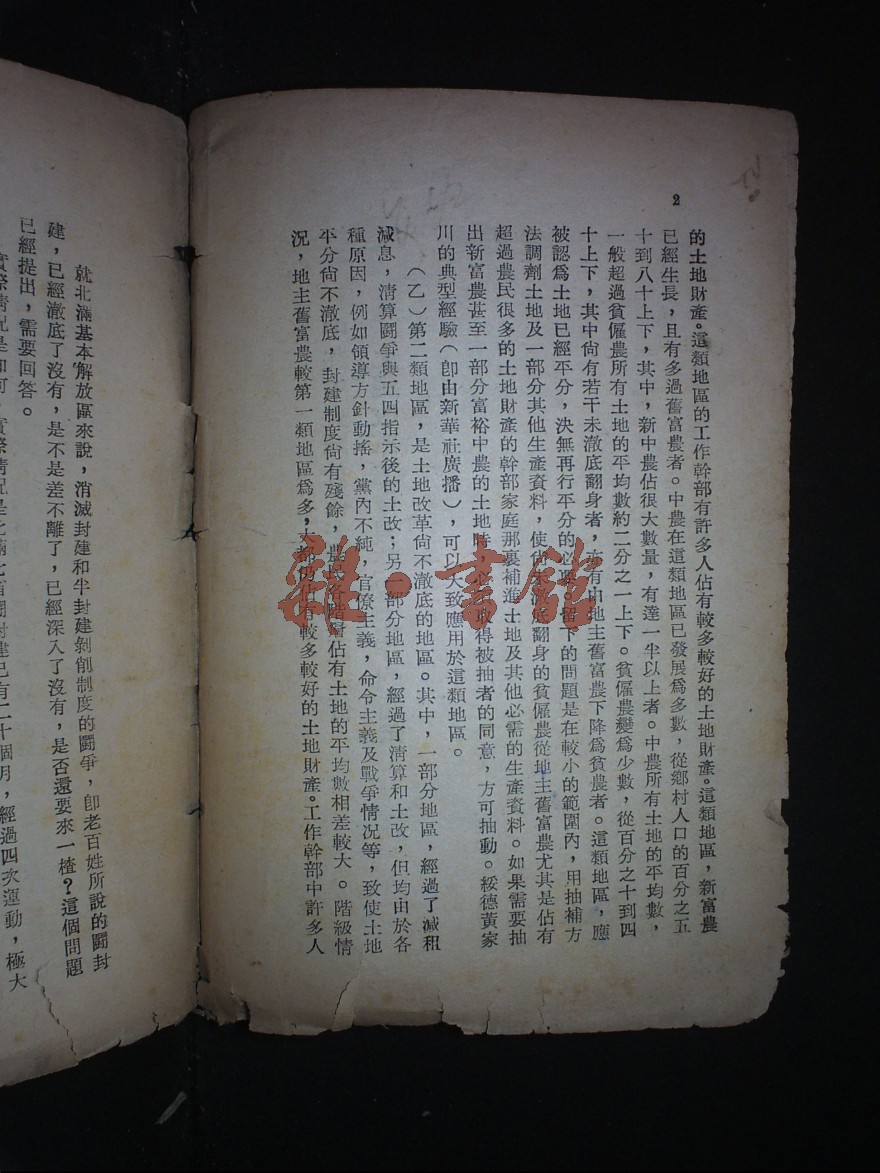 2
的土地財產。這類地區的工作幹部有許多人佔有較多較好的土地財產。這類地區，新富農
已經生長，且有多過舊富農者。中農在這類地區已發展爲多數，從鄉村人口的百分之五
十到八十上下，其中，新中農佔很大數量，有達一半以上者。中農所有土地的平均數，
一般超過貧僱農所有土地的平均數約二分之一上下。貧僱農變爲少數，從百分之十到四
十上下，其中尙有若干未澈底翻身者，亦有由地主舊富農下降爲貧農者。這類地區，應
被認爲土地已經平分，決無再行平分的必要，留下的問題是在較小的範圍內，用抽補方
法調劑土地及一部分其他生產資料，使尙未澈底翻身的貧僱農從地主舊富農尤其是佔有
超過農民很多的土地財產的幹部家庭那裏補進土地及其他必需的生產資料。如果需要抽
出新富農甚至一部分富裕中農的土地時，必須取得被抽者的同意，方可抽動。綏德黃家
川的典型經驗（卽由新華社廣播），可以大致應用於這類地區。
（乙）第二類地區，是土地改革尙不澈底的地區。其中，一部分地區，經過了減租
減息，淸算鬪爭與五四指示後的土改；另一部分地區，經過了淸算和土改，但均由於各
種原因，例如領導方針動搖，黨內不純，官僚主義，命令主義及戰爭情況等，致使土地
平分尙不澈底，封建制度尙有殘餘，農民各階層佔有土地的平均數相差較大。階級情
況，地主舊富農較第一類地區爲多，大都仍佔有較多較好的土地財產。工作幹部中許多人
就北滿基本解放區來說，消滅封建和半封建剝削制度的鬪爭，卽老百姓所說的鬪封
建，已經澈底了沒有，是不是差不離了，已經深入了沒有，是否還要來一楂？這個問題
已經提出，需要回答。
實際情況是如何，實際情況是北滿七省鬪封建已有二十個月，經過四次運動，極大
雜·書館